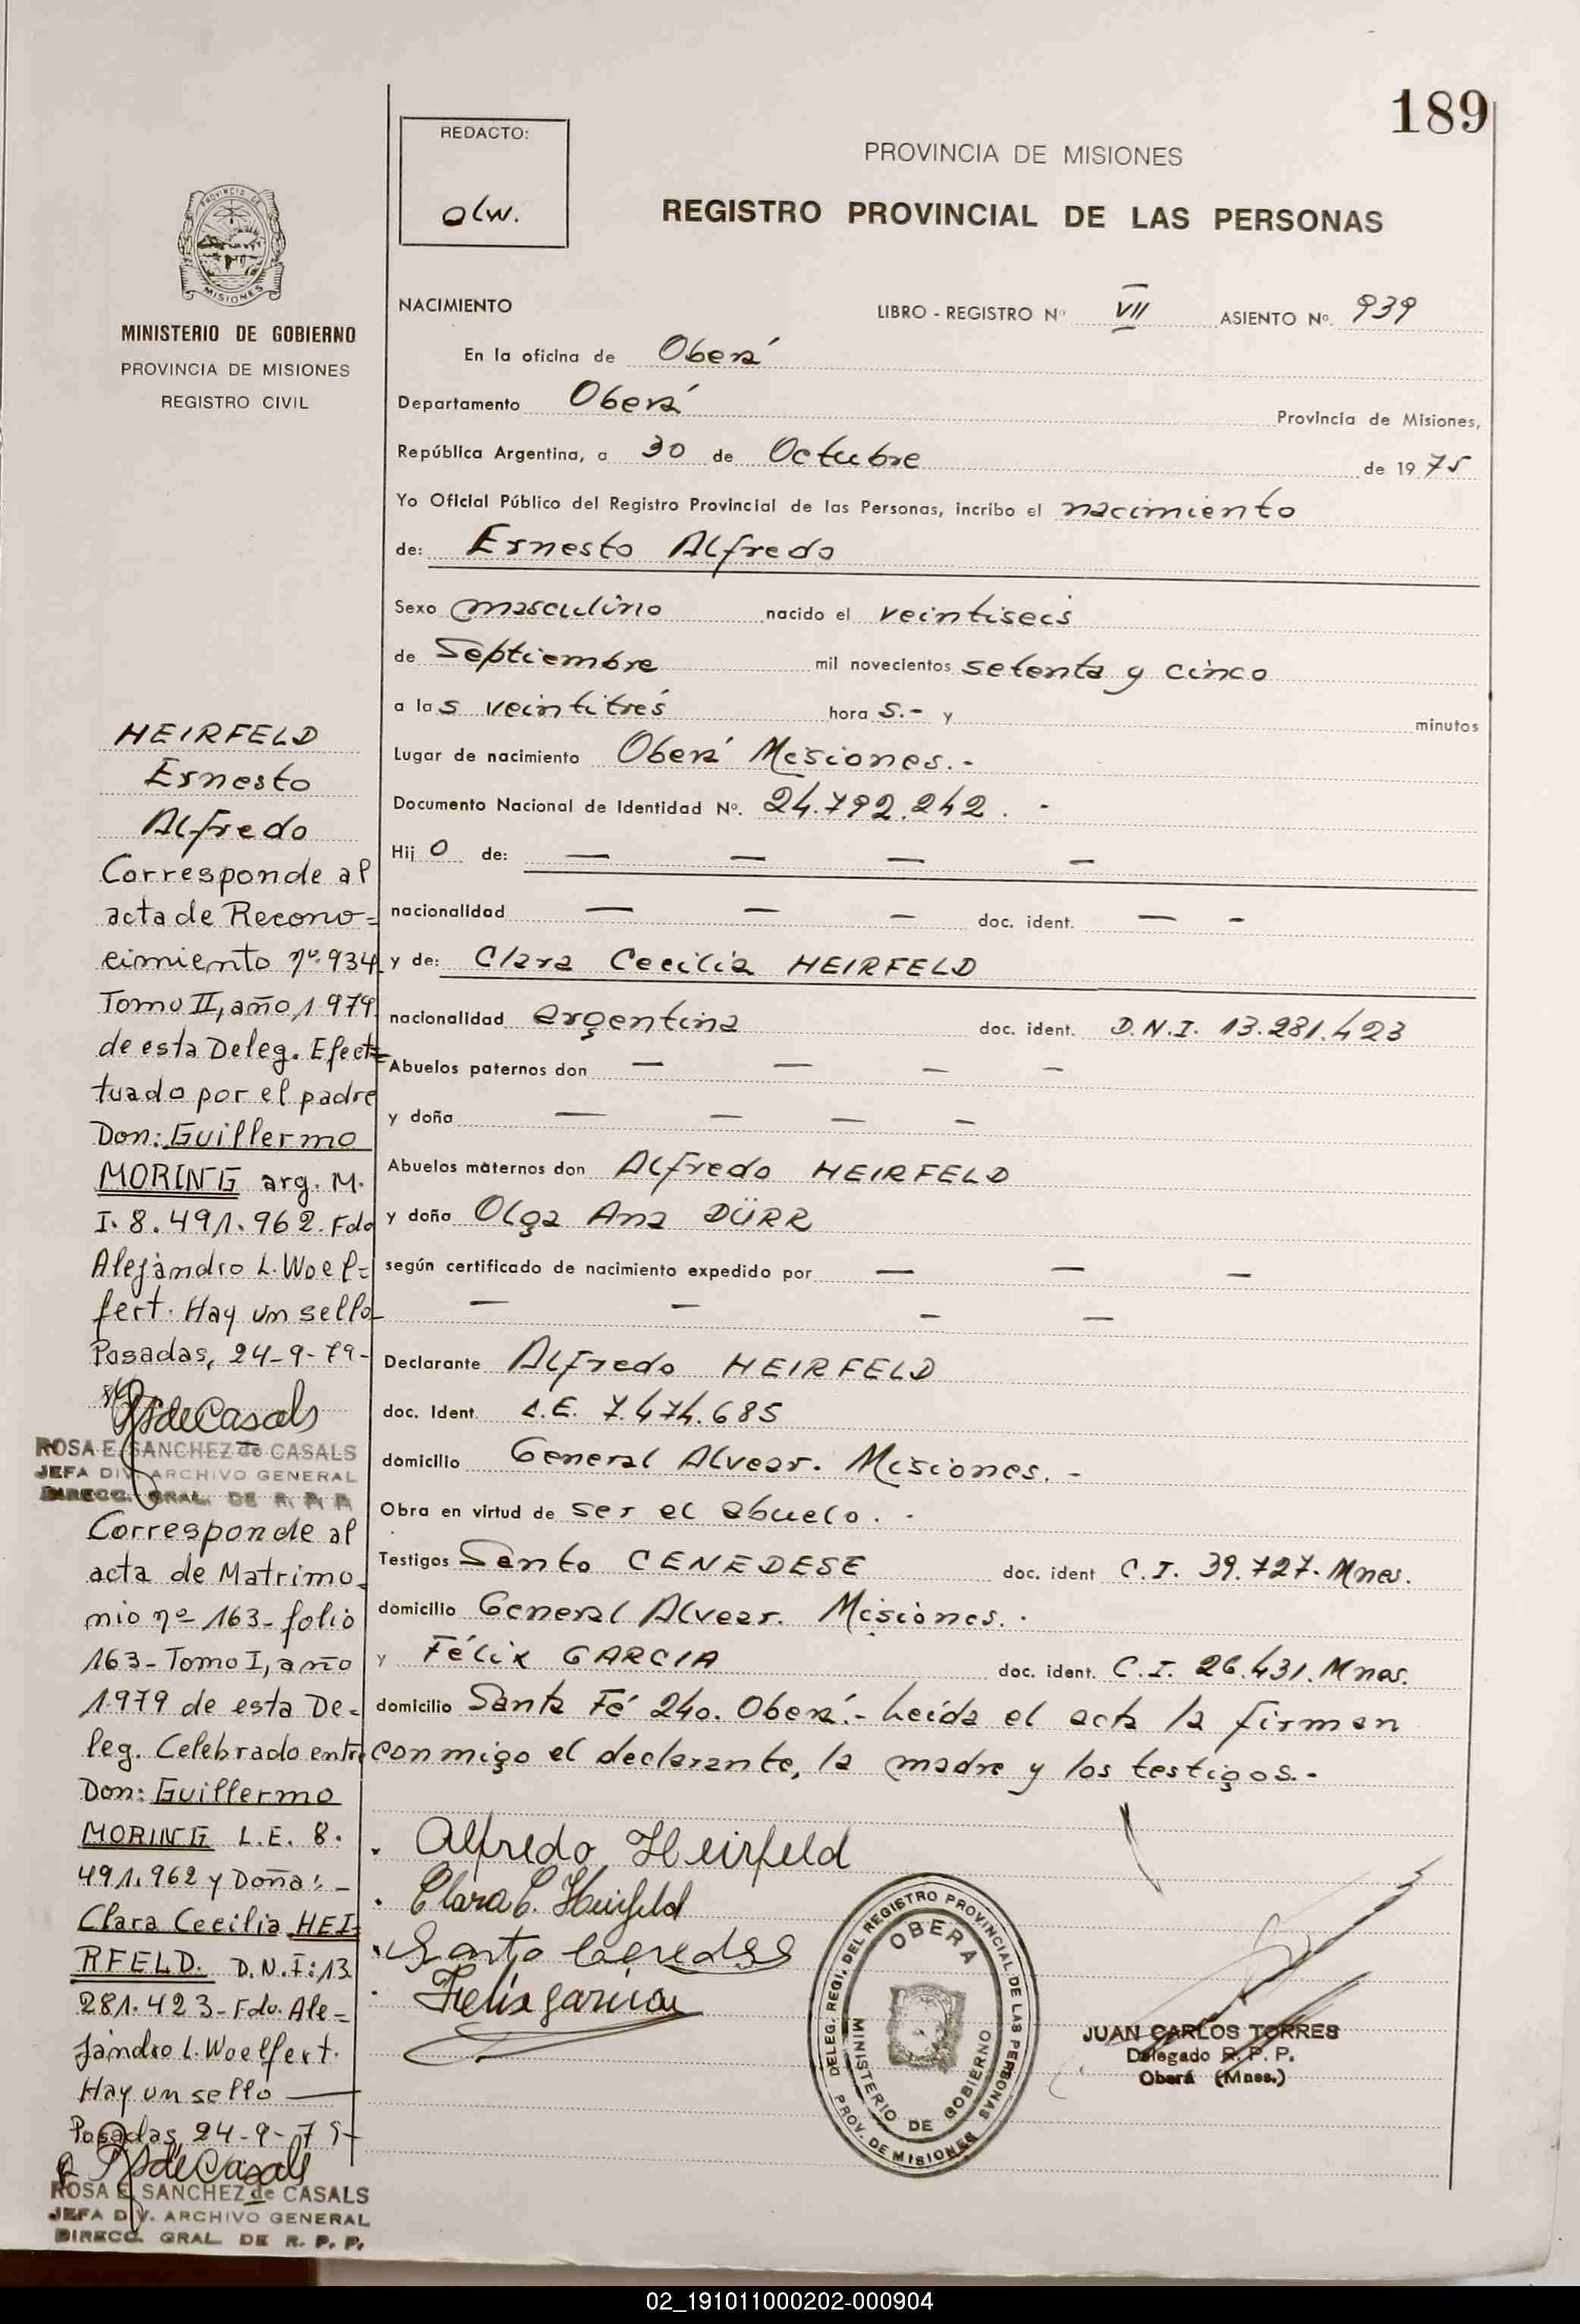 189
REDACTO:
olw.
PROVINCIA DE MISIONES
REGISTRO PROVINCIAL DE LAS PERSONAS
PROVINCIA DE
MISIONES
MINISTERIO DE GOBIERNO
PROVINCIA DE MISIONES
REGISTRO CIVIL
NACIMIENTO LIBRO - REGISTRO Nº VII ASIENTO Nº. 939
En la oficina de Oberá
Departamento Oberá Provincia de Misiones,
República Argentina, a 30 de Octubre de 1975
Yo Oficial Público del Registro Provincial de las Personas, incribo el nacimiento
de: Ernesto Alfredo
Sexo masculino nacido el veintiseis
de Septiembre mil novecientos setenta y cinco
a las veintitrés hora s.- y minutos
Lugar de nacimiento Oberá Misiones.-
Documento Nacional de Identidad Nº. 24.792.242. -
Hijo de: — — — —
nacionalidad — — — doc. ident. — -
y de: Clara Cecilia HEIRFELD
nacionalidad argentina doc. ident. D.N.I. 13.281.423
Abuelos paternos don — — — —
y doña — — — —
Abuelos maternos don Alfredo HEIRFELD
y doña Olga Ana DÜRR
según certificado de nacimiento expedido por — — —
— — — —
Declarante Alfredo HEIRFELD
doc. Ident. L.E. 7.474.685
domicilio General Alvear. Misiones. -
Obra en virtud de ser el abuelo. -
Testigos Santo CENEDESE doc. ident C.I. 39.727. Mnes.
domicilio General Alvear. Misiones. .
y Félix GARCIA doc. ident. C.I. 26.431. Mnes.
domicilio Santa Fé 240. Oberá.- Leída el acta la firman
conmigo el declarante, la madre y los testigos.-
Alfredo Heirfeld
Clara C. Heirfeld
Santo Cenedese
Felix Garcia
DELEG. REGI. DEL REGISTRO PROVINCIAL DE LAS PERSONAS
OBERA
MINISTERIO DE GOBIERNO
PROV. DE MISIONES
JUAN CARLOS TORRES
Delegado R. P. P.
Oberá (Mnes.)
HEIRFELD
Ernesto
Alfredo
Corresponde al
acta de Recono=
cimiento nº. 934
Tomo II, año 1.979.
de esta Deleg. Efect=
tuado por el padre
Don: Guillermo
MORING arg. M.
I. 8.491.962. Fdo
Alejandro L. Woel=
fert. Hay un sello
Posadas, 24-9-79-
RSdeCasals
ROSA E. SANCHEZ de CASALS
JEFA DIV. ARCHIVO GENERAL
DIRECC. GRAL. DE R. P. P.
Corresponde al
acta de Matrimo=
nio nº 163- folio
163- Tomo I, año
1.979 de esta De=
leg. Celebrado entre
Don: Guillermo
MORING L.E. 8.
491.962 y Doña: -
Clara Cecilia HEI=
RFELD. D.N.I: 13
281.423- Fdo. Ale=
jandro L. Woelfert.
Hay un sello —
Posadas, 24-9-79-
RSdeCasals
ROSA E. SANCHEZ de CASALS
JEFA DIV. ARCHIVO GENERAL
DIRECC. GRAL. DE R. P. P.
02_191011000202-000904